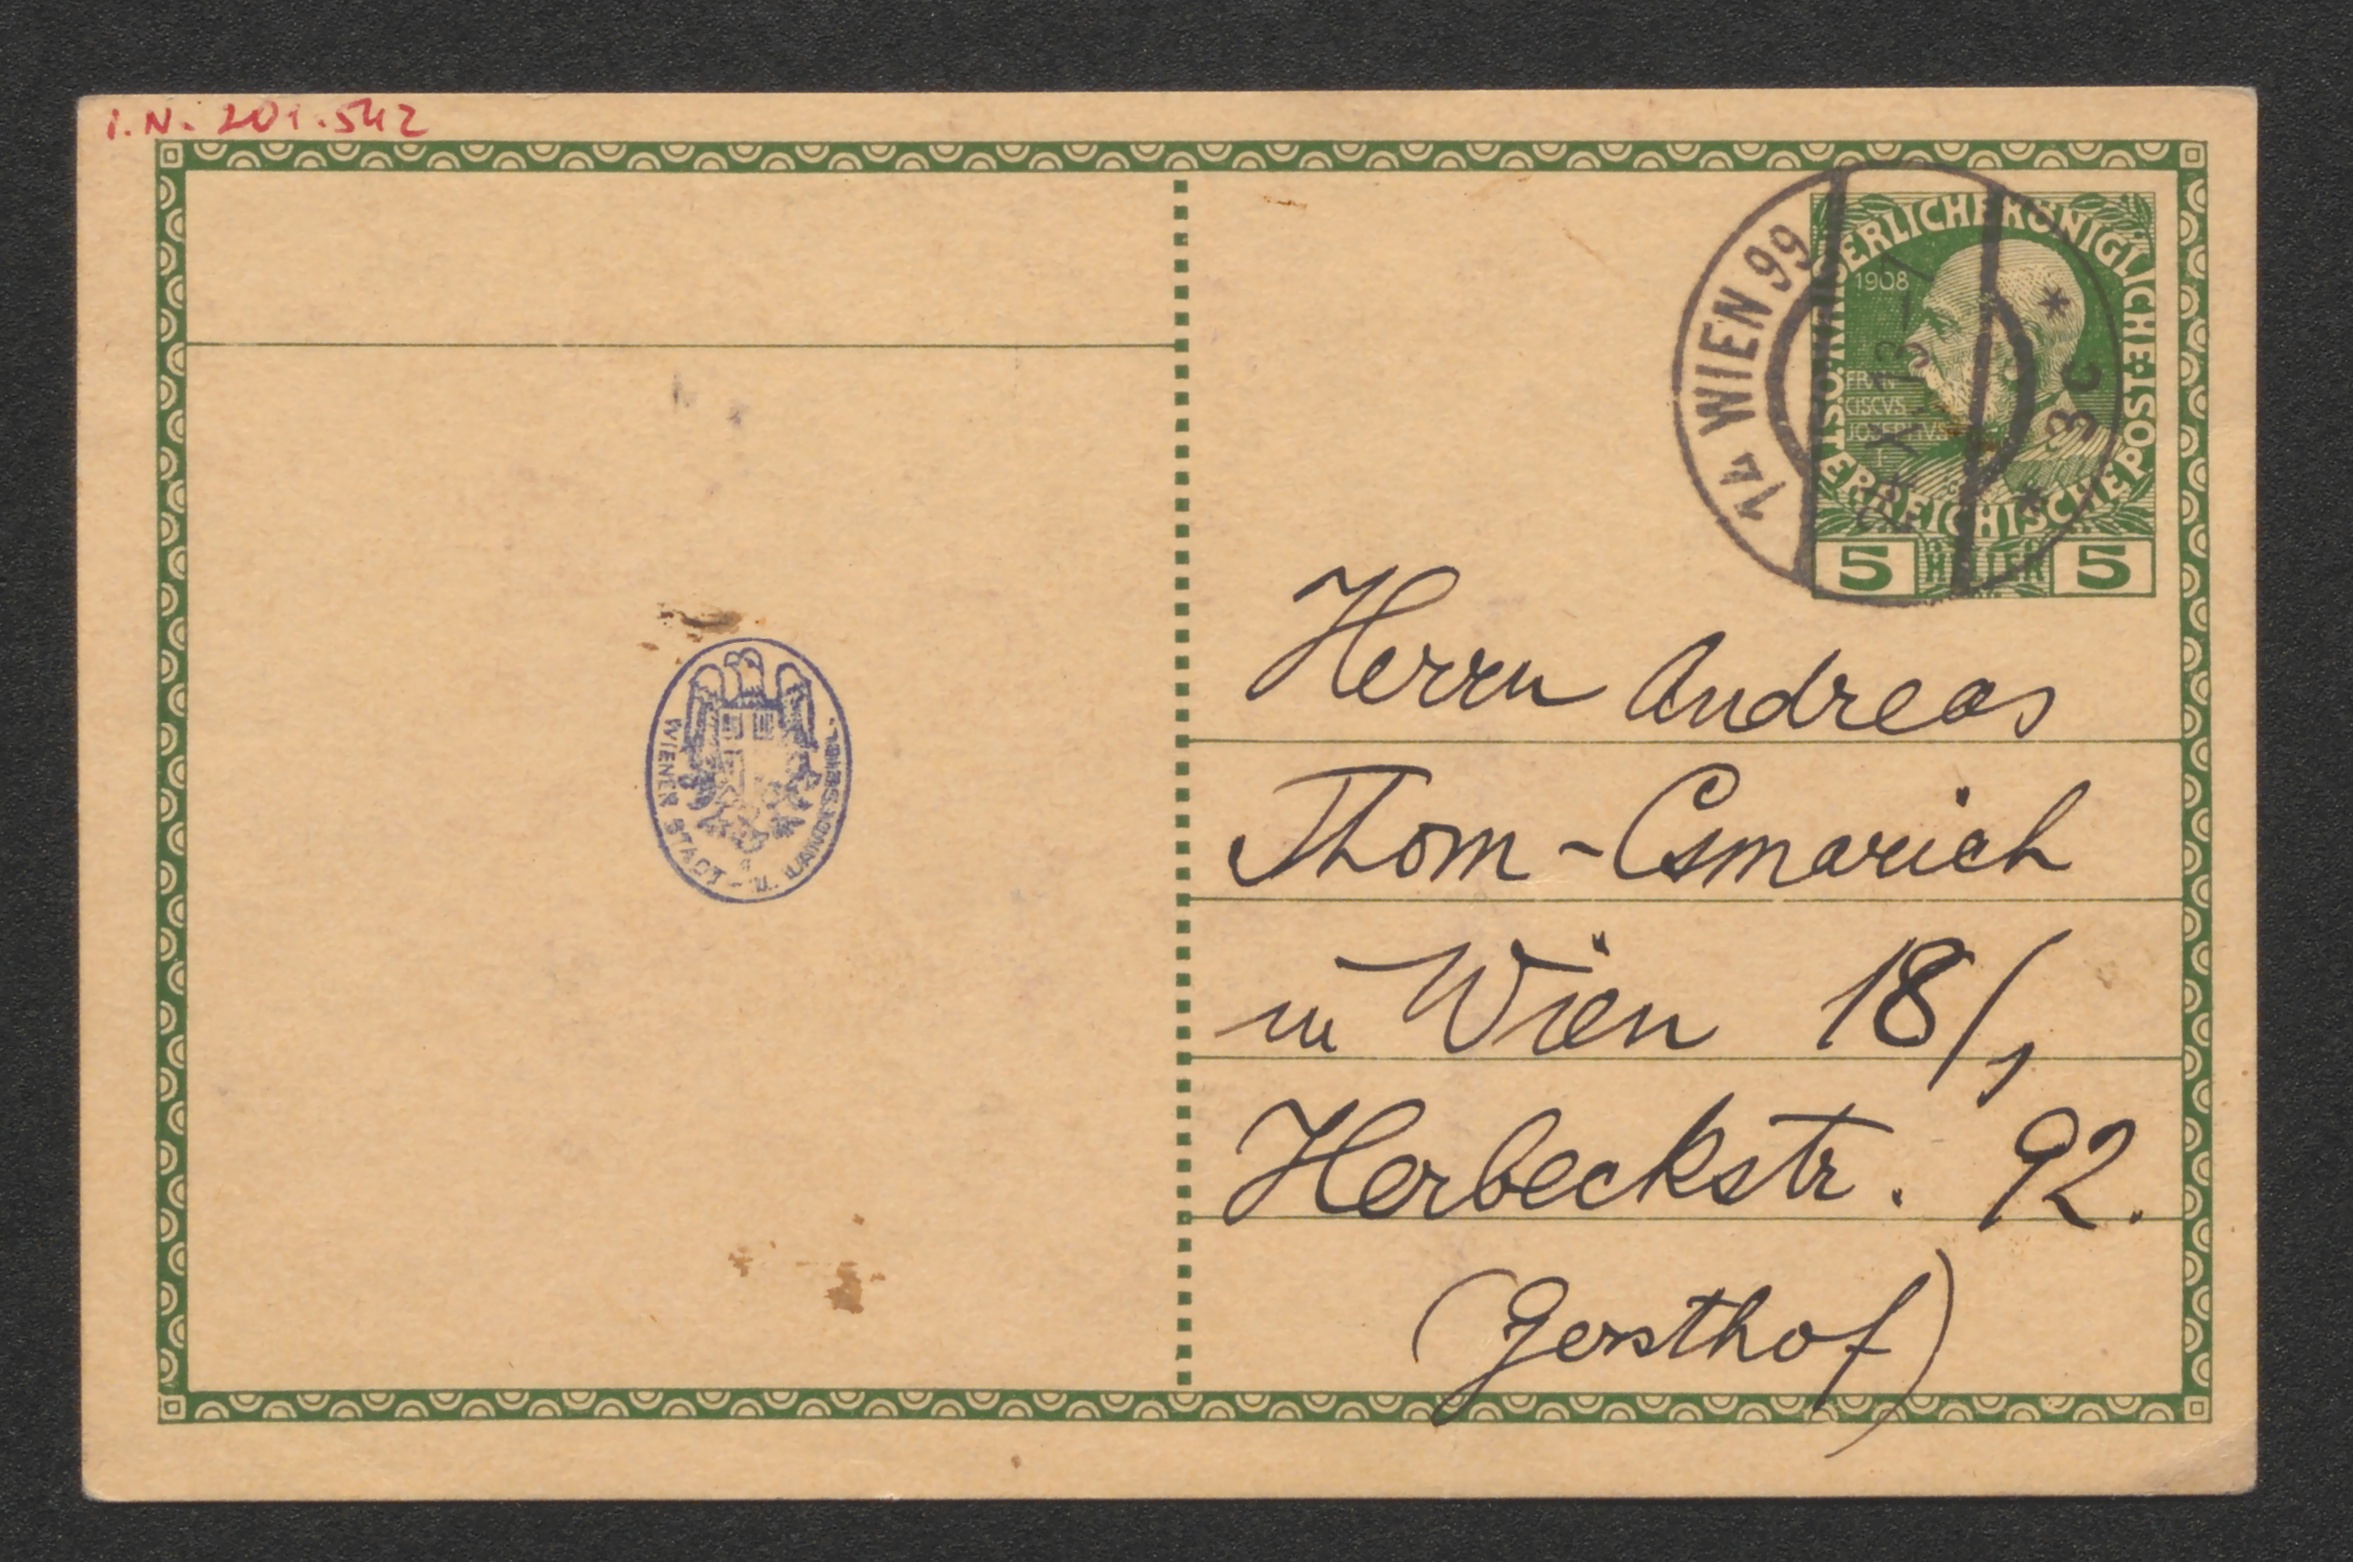 I.N. 201.542
14 WIEN 99
* 3c *
KAISERLICHE KÖNIGLICHE
ÖSTERREICHISCHE POST
1908
FRAN
CISCVS
JOSEPHVS
I
5 HELLER 5
Herrn Andreas
Thom-Esmarich
in Wien 18/1
Herbeckstr. 92.
(Gersthof)
WIENER STADT- U. LANDESBIBL.